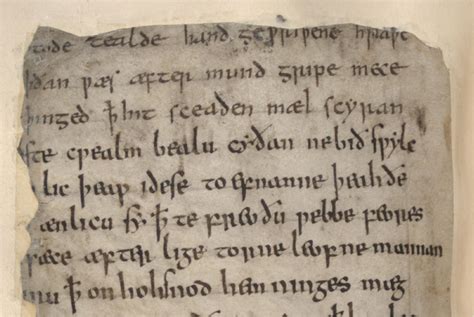 tode tealde hand geƿriþene hraþe
ðan ƿæs æfter mund gripe mece
inged ꝥ hit sceaden mæl scyran
ste cƿealm bealu cyðan ne bið sƿylc
lic þeaƿ idese to efnanne þeah ðe
ænlicu sy ꝥ te freoðu ƿebbe feores
sæce æfter lige torne leofne mannan
ru ꝥ onhohsnod hem ninges mæg